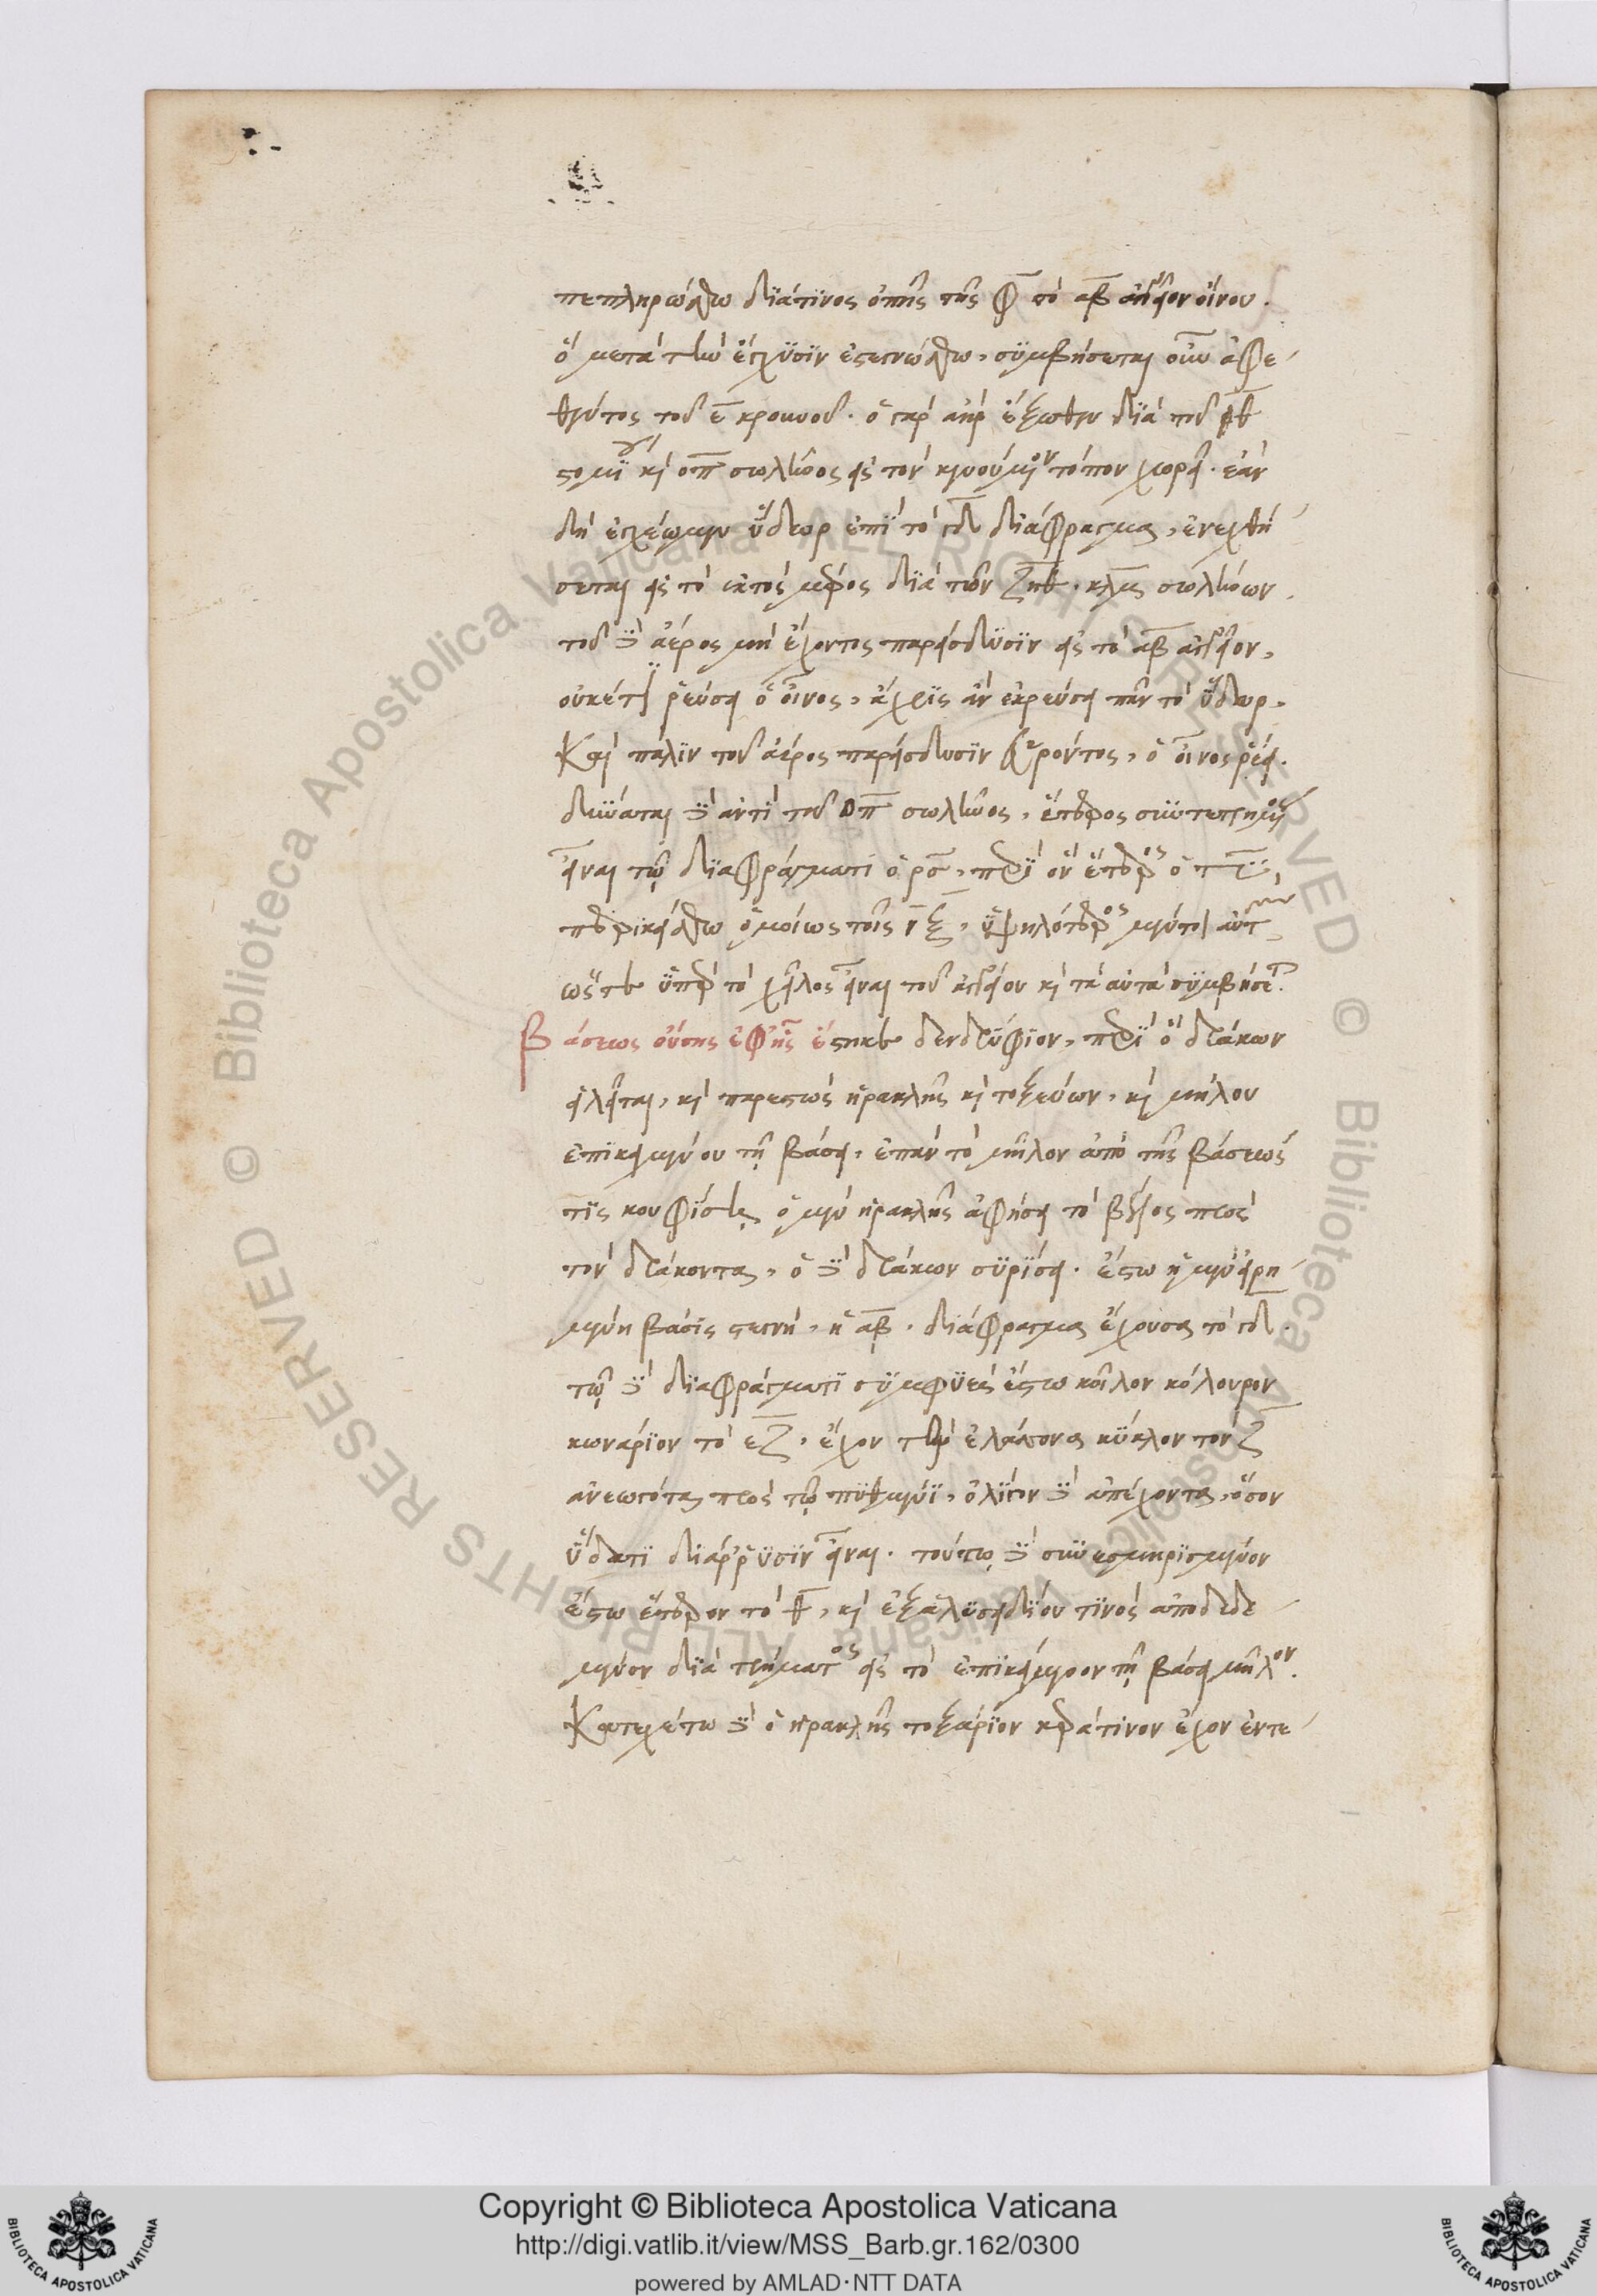 πεπληρώσθω διά τινος ὀπῆς τῆς Φ τὸ αβ ἀγγεῖον οἴνου.
ὃ μετὰ τὴν ἔγχυσιν ἐστεγνώσθω. συμβήσεται οὖν ἀφε-
θέντος τοῦ ε κρουνοῦ. ὁ γὰρ ἀὴρ ἔξωθεν διὰ τοῦ θ
στομίου καὶ οπ σωλῆνος εἰς τὸν κενούμενον τόπον χωρεῖ. ἐὰν
δὴ ἐγχέωμεν ὕδωρ ἐπὶ τὸ γδ διάφραγμα, ἐνεχθή-
σεται εἰς τὸ ἐκτὸς μέρος διὰ τῶν ζηθ. κλμ σωλήνων.
τοῦ δὲ ἀέρος μὴ ἔχοντος παρείσδυσιν εἰς τὸ αβ ἀγγεῖον,
οὐκέτι ῥεύσει ὁ οἶνος, ἄχρις ἂν ἐκρεύσῃ πᾶν τὸ ὕδωρ.
Καὶ πάλιν τοῦ ἀέρος παρείσδυσιν εὑρόντος, ὁ οἶνος ῥέει.
δύναται δὲ ἀντὶ τοῦ οπ σωλῆνος, ἕτερος συντετρημένος
εἶναι τῷ διαφράγματι ὁ ρσ, περὶ ὃν ἕτερος ὁ τυ,
περικείσθω ὁμοίως τοῖς νξ, ὑψηλότερος μέντοι αὐτῶν
ὥστε ὑπὲρ τὸ χεῖλος εἶναι τοῦ ἀγγείου καὶ τὰ αὐτὰ συμβήσεται.
Βάσεως οὔσης ἐφ' ἧς ἕστηκε δενδρύφιον, περὶ ὃ δράκων
εἱλεῖται, καὶ παρεστὼς ἡρακλῆς καὶ τοξεύων, καὶ μήλου
ἐπικειμένου τῇ βάσει, ἐπὰν τὸ μῆλον ἀπὸ τῆς βάσεως
τὶς κουφίσῃ, ὁ μὲν ἡρακλῆς ἀφήσει τὸ βέλος πρὸς
τὸν δράκοντα, ὁ δὲ δράκων συρίσει. ἔστω ἡ μὲν εἰρη-
μένη βάσις στεγνὴ, ἡ αβ. διάφραγμα ἔχουσα τὸ γδ.
τῷ δὲ διαφράγματι συμφυὲς ἔστω κοῖλον κόλουρον
κωνάριον τὸ εζ, ἔχον τὸν ἐλάσσονα κύκλον τὸν ζ
ἀνεωγότα πρὸς τῷ πυθμένι, ὀλίγον δὲ ἀπέχοντα, ὅσον
ὕδατι διάρρυσιν εἶναι. τούτῳ δὲ συνεσμηρισμένον
ἔστω ἕτερον τὸ θ, καὶ ἐξ ἁλυσειδίου τινὸς ἀποδεδε-
μένον διὰ τρήματος εἰς τὸ ἐπικείμενον τῇ βάσει μῆλον.
Κατεχέτω δὲ ὁ ἡρακλῆς τοξάριον κεράτινον ἔχον ἐντε-
Copyright © Biblioteca Apostolica Vaticana
http://digi.vatlib.it/view/MSS_Barb.gr.162/0300
powered by AMLAD·NTT DATA